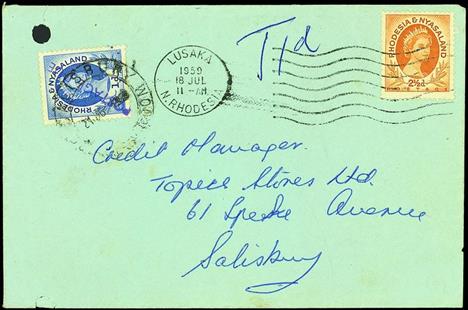 T1d
RHODESIA & NYASALAND
2½d
RHODESIA & NYASALAND
1d
LUSAKA
1959
18 JUL
11 - AM
N. RHODESIA
Credit Manager.
Topics Stores Ltd.
61 Speke Avenue
Salisbury